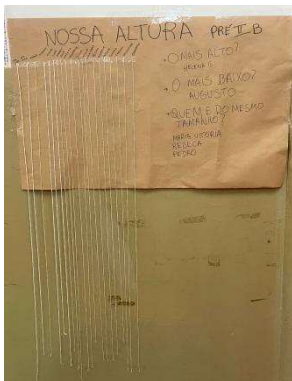 NOSSA ALTURA PRÉ II B
• O MAIS ALTO?
• O MAIS BAIXO?
AUGUSTO
• QUEM É DO MESMO
TAMANHO?
MARIA VITORIA
REBECA
PEDRO